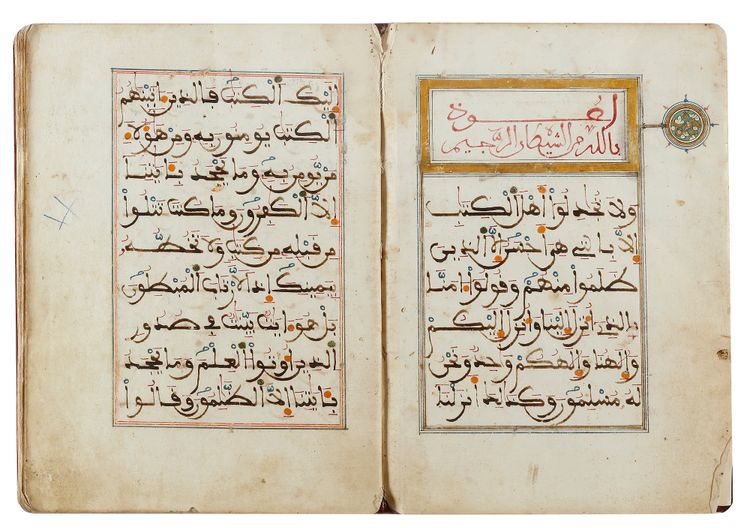 أعوذ
بالله من الشيطان الرجيم
ولا تجدلوا أهل الكتب
إلا بالتي هي أحسن إلا الذين
ظلموا منهم وقولوا ءامنا
بالذي أنزل إلينا وأنزل إليكم
وإلهنا وإلهكم وحد ونحن
له مسلمون وكذلك أنزلنا
إليك الكتب فالذين ءاتينهم
الكتب يومنون به ومن هؤلاء
من يومن به وما يجحد بـٔايتنا
إلا الكفرون وما كنت تتلوا
من قبله من كتب ولا تخطه
بيمينك إذا لارتاب المبطلون
بل هو ءايت بينت في صدور
الذين أوتوا العلم وما يجحد
بـٔايتنا إلا الظلمون وقالوا